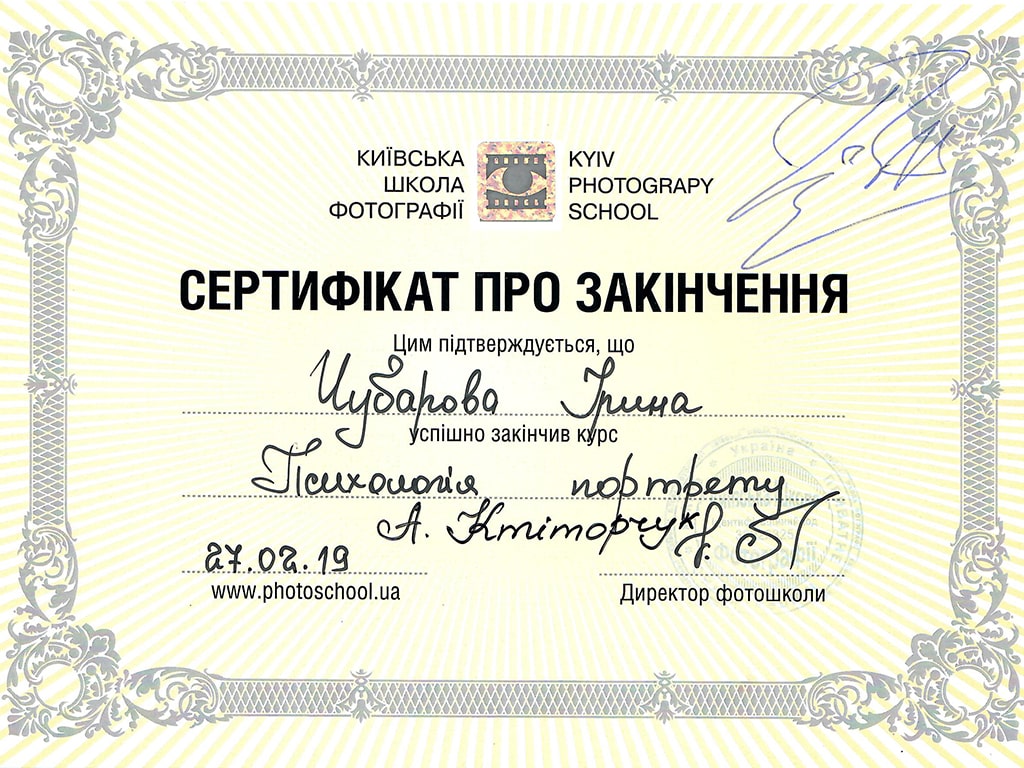 КИЇВСЬКА
ШКОЛА
ФОТОГРАФІЇ
KYIV
PHOTOGRAPY
SCHOOL
СЕРТИФІКАТ ПРО ЗАКІНЧЕННЯ
Цим підтверджується, що
Чубарова Ірина
успішно закінчив курс
Психологія портрету
А. Ктіторчук
27.02.19
www.photoschool.ua
Директор фотошколи
Україна
Фотографії